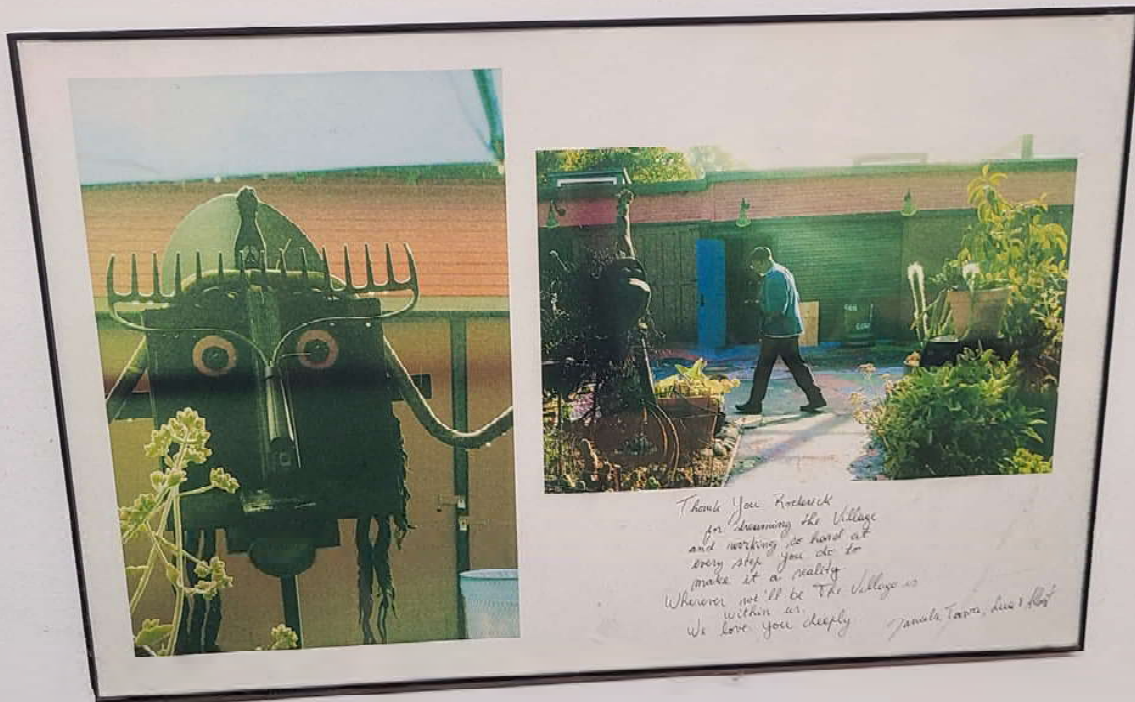 Thank You Roderick
for dreaming the Village
and working so hard at
every step you do to
make it a reality
Wherever we'll be The Village is
within us.
We love you deeply